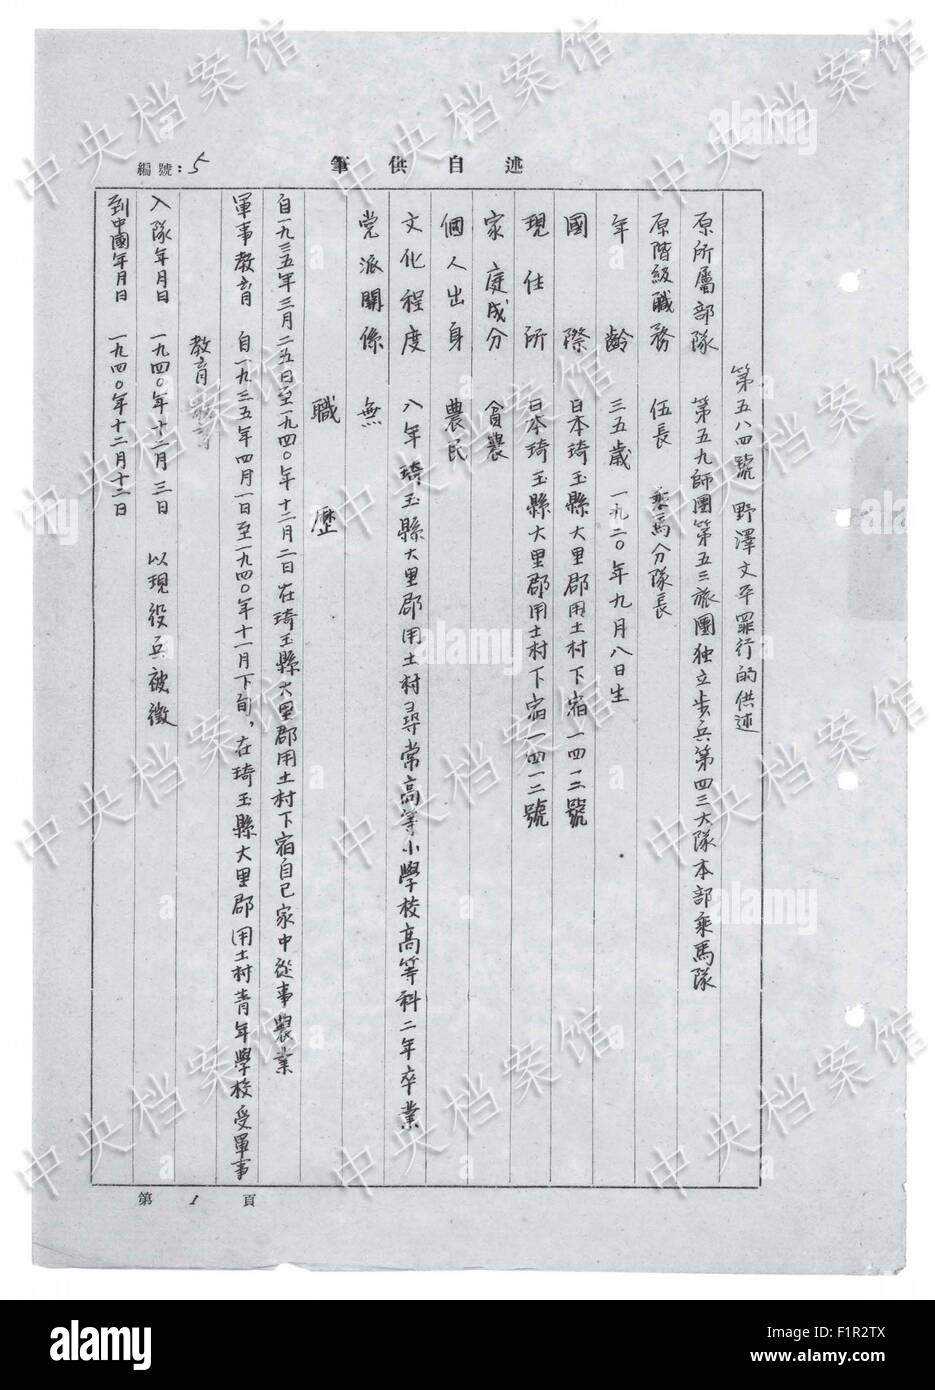 述自供筆
編號：5
第五八四號 野澤文平罪行的供述
原所屬部隊 第五九師團第五三旅團独立步兵第四三大隊本部乘馬隊
原階級職務 伍長 乘馬分隊長
年齡 三五歲 一九二〇年九月八日生
國際 日本琦玉縣大里郡用土村下宿一四一二號
現住所 日本琦玉縣大里郡用土村下宿一四一二號
家庭成分 貧農
個人出身 農民
文化程度 八年 琦玉縣大里郡用土村尋常高等小學校高等科二年卒業
党派關係 無
職歷
自一九三五年三月二五日至一九四〇年十二月二日在琦玉縣大里郡用土村下宿自己家中從事農業
軍事教育 自一九三五年四月一日至一九四〇年十一月下旬，在琦玉縣大里郡用土村青年學校受軍事
教育
入隊年月日 一九四〇年十二月三日 以現役兵被徵
到中國年月日 一九四〇年十二月十二日
第 1 頁
中央档案馆
alamy
Image ID: F1R2TX
www.alamy.com